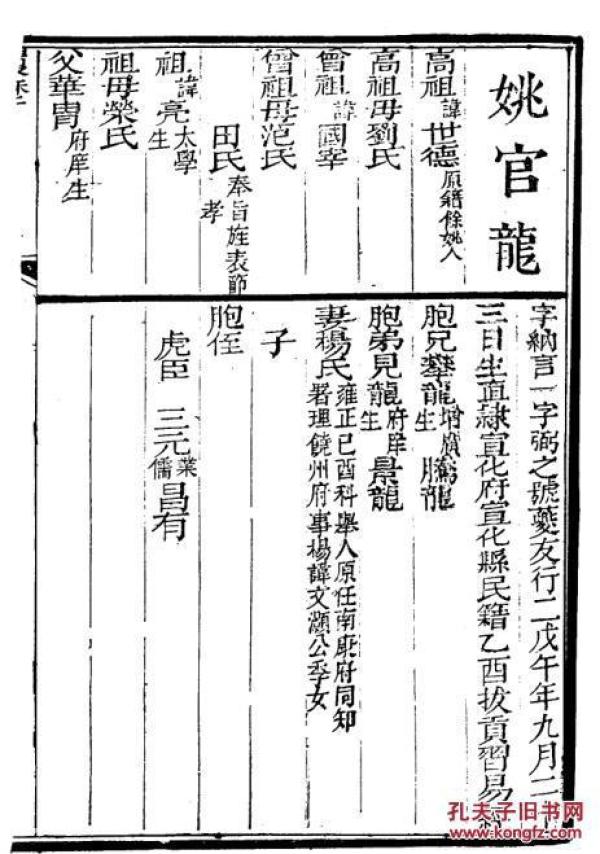 姚官龍
字納言一字弼之號夔友行二戊午年九月二
三日生直隸宣化府宣化縣民籍乙酉拔貢習易經
高祖諱世德原籍餘姚人
高祖母劉氏
曾祖諱國宰
曾祖母范氏
田氏奉旨旌表節孝
祖諱亮太學生
祖母榮氏
父華冑府庠生
胞兄攀龍增廣生 騰龍
胞弟見龍府庠生 景龍
妻楊氏雍正己酉科舉人原任南康府同知
署理饒州府事楊諱文灝公季女
子
胞侄
虎臣 三元業儒 昌有
履歷
孔夫子旧书网
www.kongfz.com